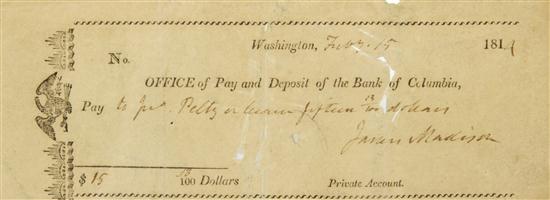 Washington, Feby. 15 1814
No.
OFFICE of Pay and Deposit of the Bank of Columbia,
Pay to Jno. Peltz or bearer fifteen 13/100 dollars
James Madison
$ 15 13/100 Dollars Private Account.